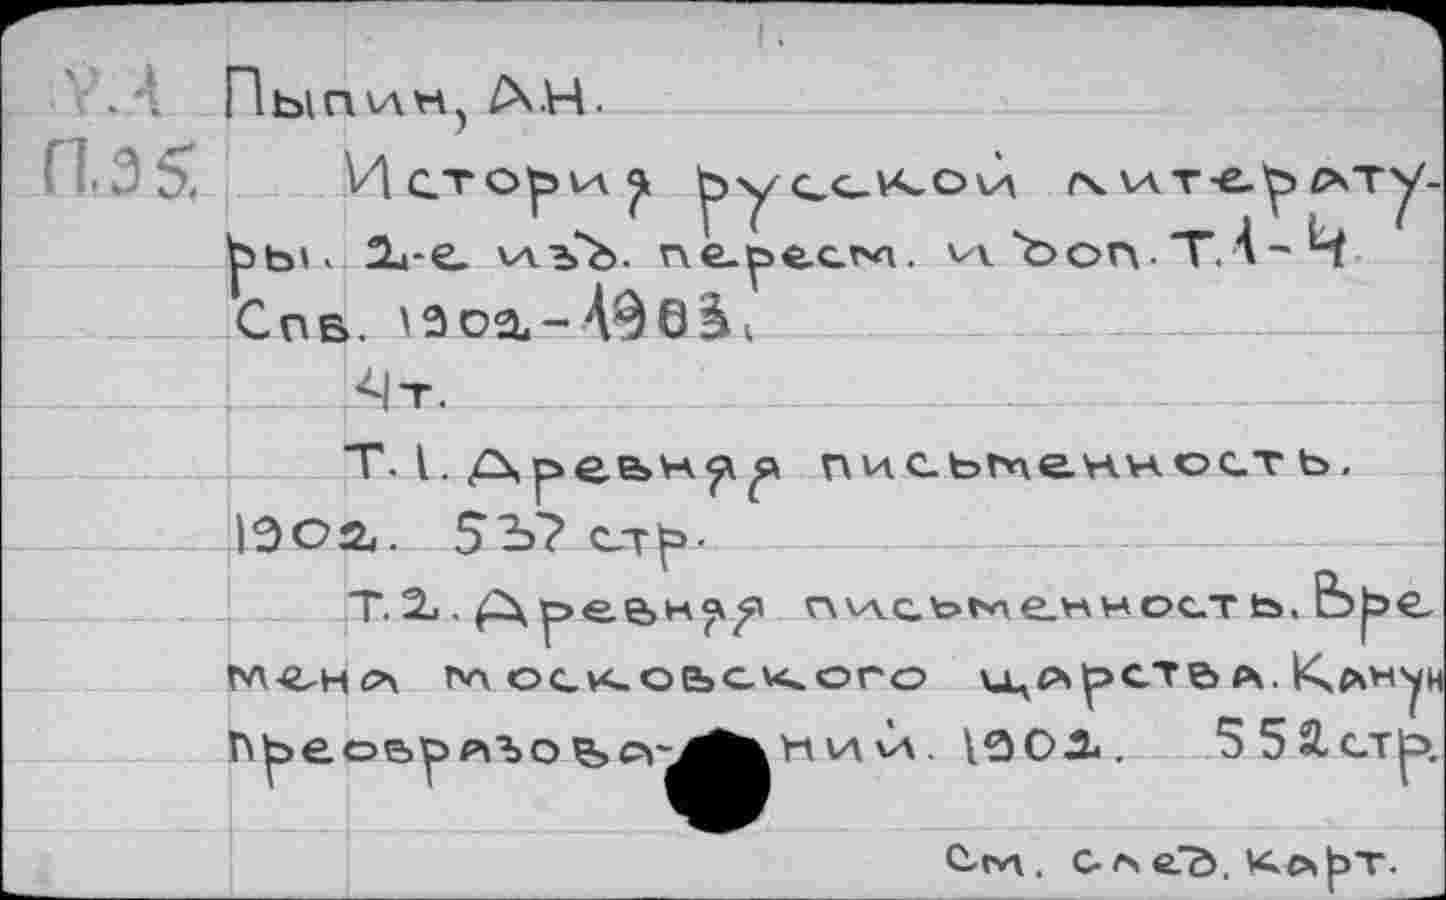 У.А Пыпин, А.Н.
П.95. История русской литерату-
ры. 2-е изд. пересм. и доп. Т.1-4
Спб. 1902-1903.
4 т.
Т.1. Древняя письменность.
1902. 537 стр.
Т.2. Древняя письменность. Вре
мена московского царства. Канун
преобразований. 1902. 552 стр.
См. след. карт.